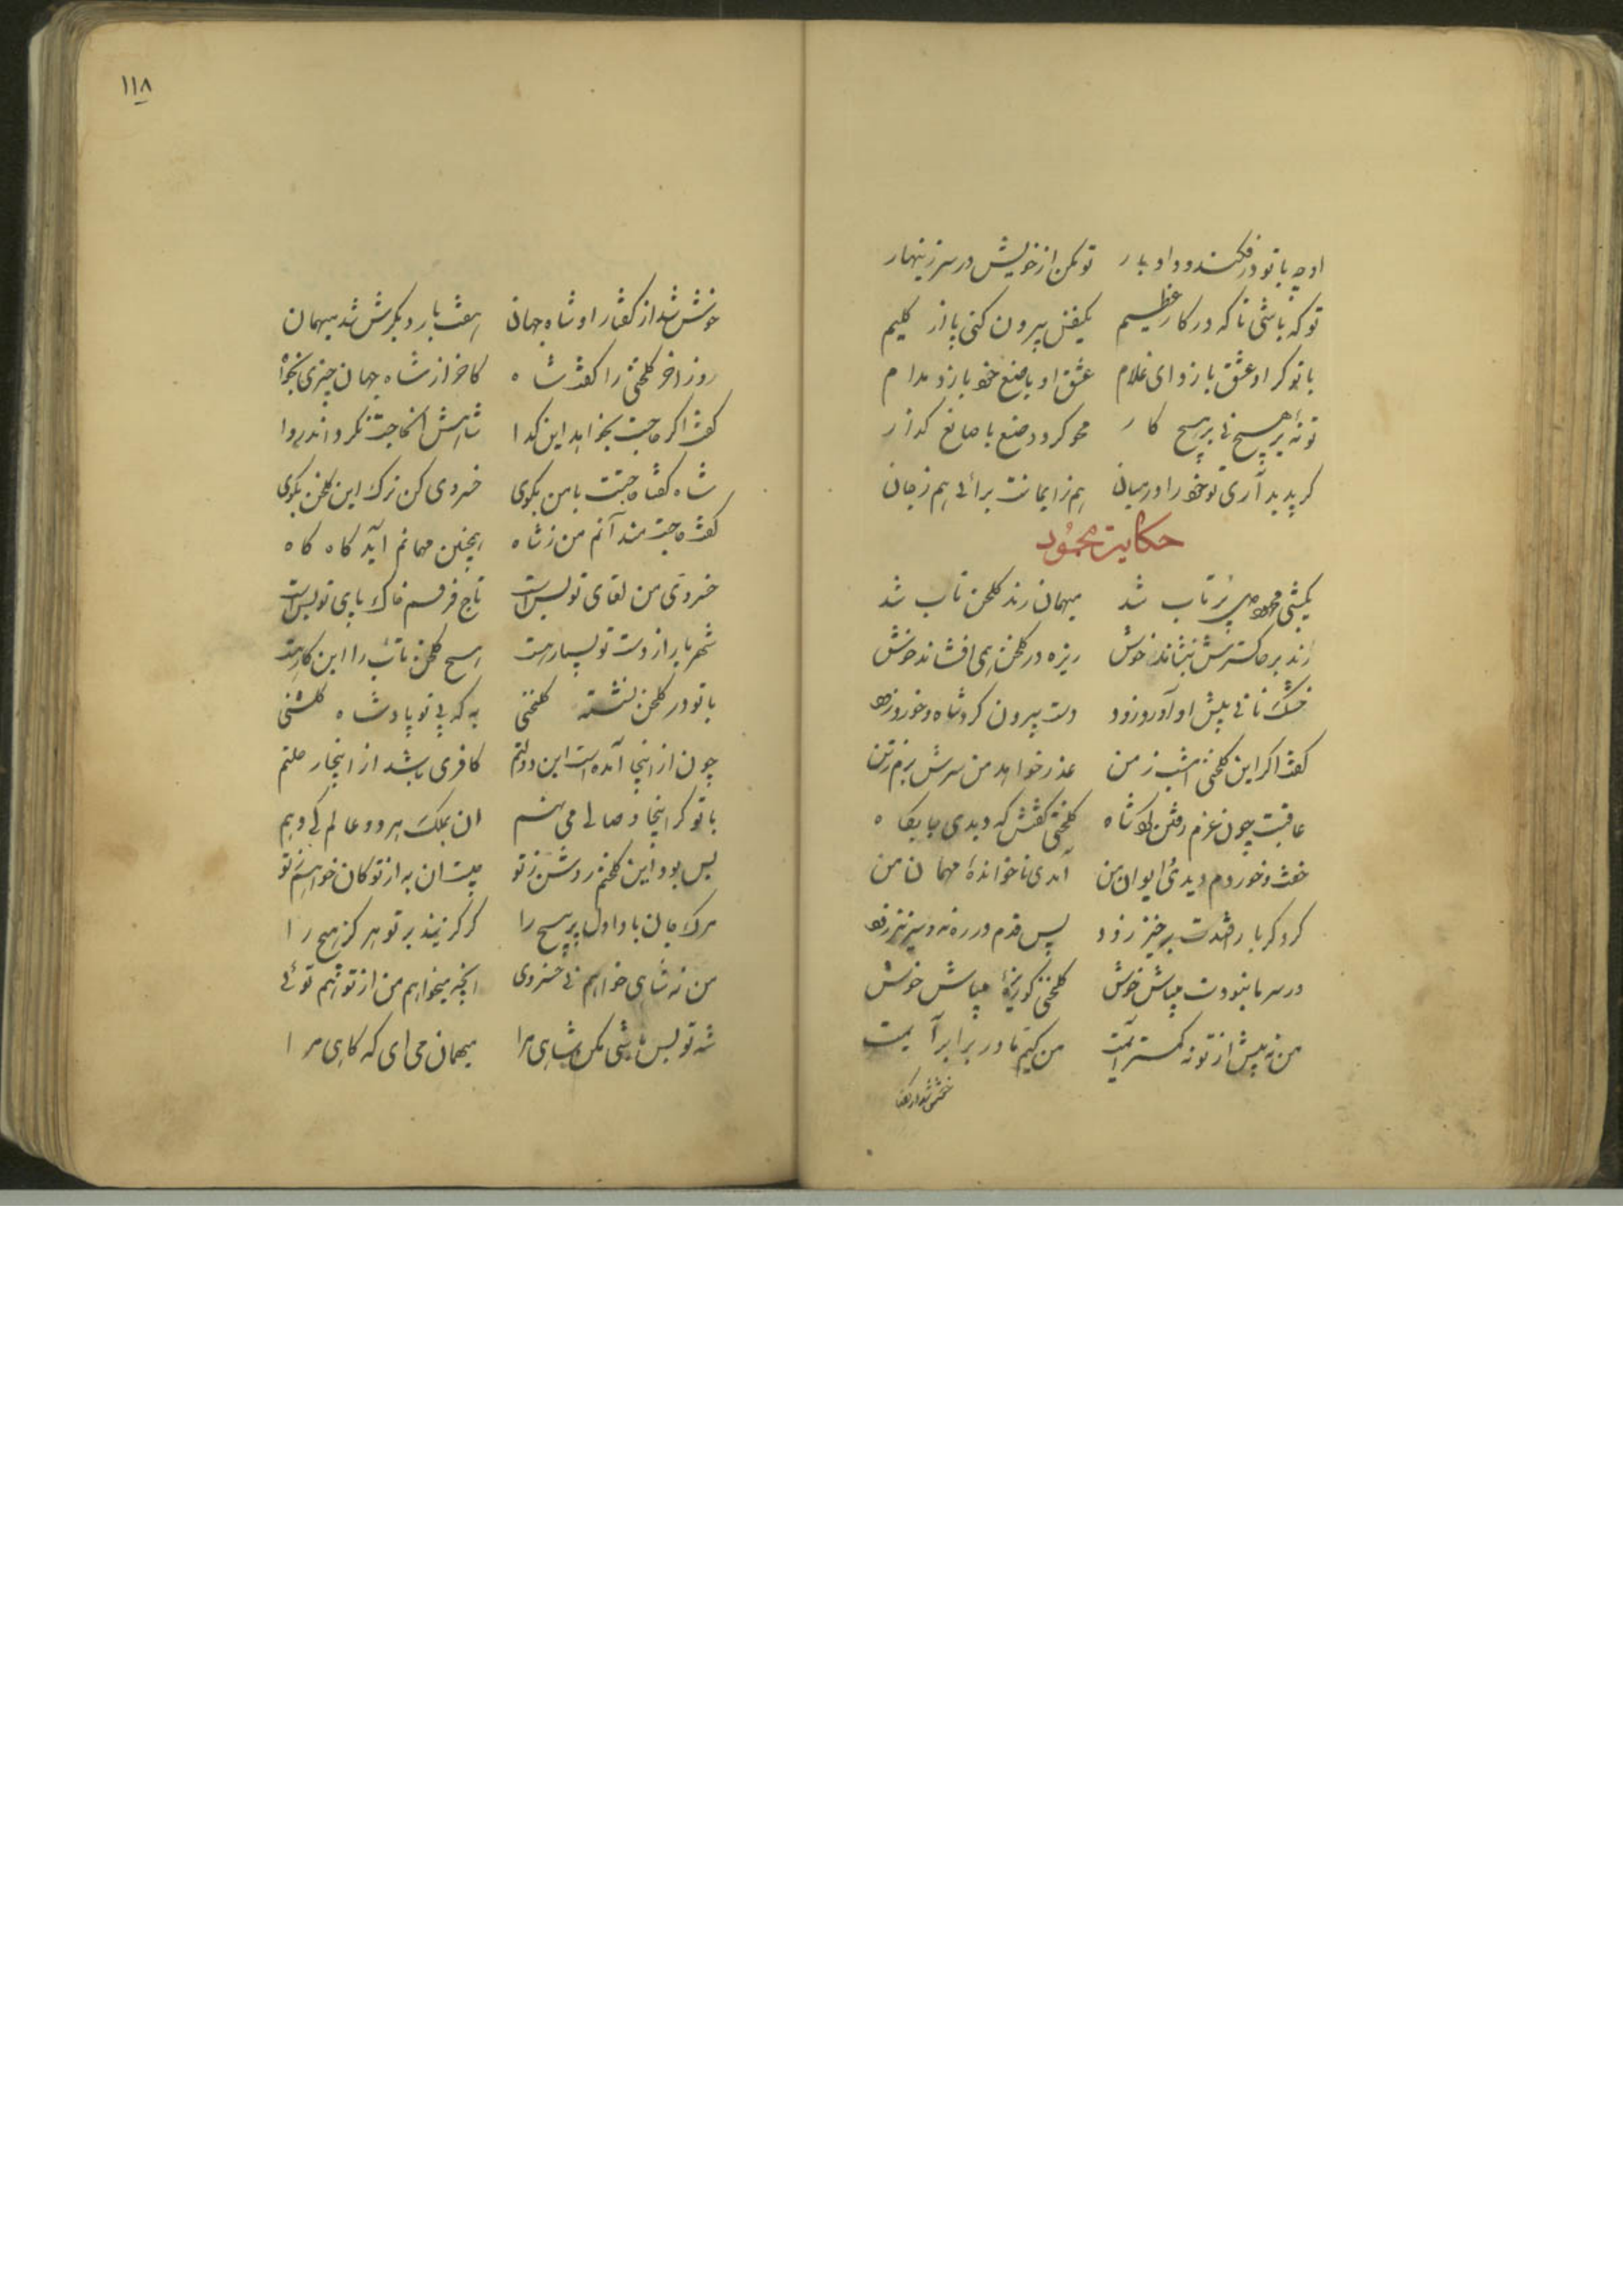 او چو با تو درفکند و داد بار تو مکن از خویش در سر زینهار
تو که باشی تا که در کار عظیم یکنفس بیرون کنی پا از گلیم
با تو گر او عشق بازد ای غلام عشق او با صنع خود بازد مدام
تو نهٔ بر هیچ نی بر هیچ کار محو گردد صنع با صانع گذار
گر پدید آری تو خود را در میان هم ز ایمانت برائی هم ز جان
حکایت محمود
یکشبی محمود پرتاب شد میهمان رند گلخن تاب شد
رند بر خاکسترش بنشاند خوش ریزه در گلخن همی افشاند خوش
خشک نانی پیش او آورد زود دست بیرون کرد شاه و خورد زود
گفت اگر این گلخنی امشب ز من عذر خواهد من سرش برم ز تن
عاقبت چون عزم رفتن کرد شاه گلخنی گفتش که دیدی جایگاه
خفت و خوردم دیدی ایوان من آمدی ناخواندهٔ مهمان من
گر دگر بار افتدت برخیز زود پس قدم در ره نه و سر نیز زود
ور سر ما نبودت میباش خوش گلخنی گو ریزهٔ میپاش خوش
من نه بیش از تو نه کمتر آیمت من کیم تا در برابر آیمت
خوش شد از گفتا
١١٨
خوش شد از گفتار او شاه جهان هفت بار دیگرش شد میهمان
روز آخر گلخنی را گفت شاه کاخر از شاه جهان چیزی بخواه
گفت اگر حاجت بخواهد این گدا شاهش آن حاجت نگرداند روا
شاه گفتا حاجتت با من بگوی خسروی کن ترک این گلخن بگوی
گفت حاجتمند آنم من ز شاه همچنین مهمانم آید گاه گاه
خسروی من لقای تو بس است تاج فرقم خاک پای تو بس است
شهریار از دست تو بسیار هست هیچ گلخن تاب را این کار هست
با تو در گلخن نشسته گلخنی به که بی تو پادشاه گلشنی
چون از اینجا آمده است این دولتم کافری باشد از اینجا رحلتم
با تو گر اینجا وصالی می نهم آن بملک هر دو عالم کی دهم
بس بود این گلخنم روشن ز تو چیست آن به از تو کان خواهم ز تو
مرگ جان باد این دل پر پیچ را گر گزیند بر تو هرگز هیچ را
من نه شاهی خواهم نی خسروی آنچه میخواهم من از تو هم توئی
شه تو بس باشی مکن شاهی مرا میهمان می ای که گاهی مرا